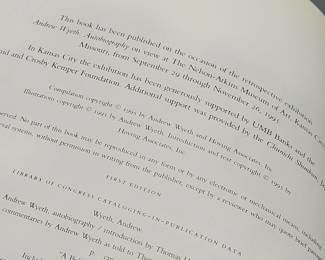 This book has been published on the occasion of the retrospective exhibition
Andrew Wyeth: Autobiography on view at The Nelson-Atkins Museum of Art, Kansas City,
Missouri, from September 29 through November 26, 1995.
In Kansas City the exhibition has been generously supported by UMB Banks and the
and Crosby Kemper Foundation. Additional support was provided by the Glunichi Shimbun,
Compilation copyright © 1995 by Andrew Wyeth and Hoving Associates, Inc.
Illustrations copyright © 1995 by Andrew Wyeth. Introduction and text copyright © 1995 by
Hoving Associates, Inc.
No part of this book may be reproduced in any form or by any electronic or mechanical means, including
systems, without permission in writing from the publisher, except by a reviewer who may quote brief passages
FIRST EDITION
LIBRARY OF CONGRESS CATALOGING-IN-PUBLICATION DATA
Wyeth, Andrew.
Andrew Wyeth, autobiography / introduction by Thomas
commentaries by Andrew Wyeth as told to
p. cm.
"A